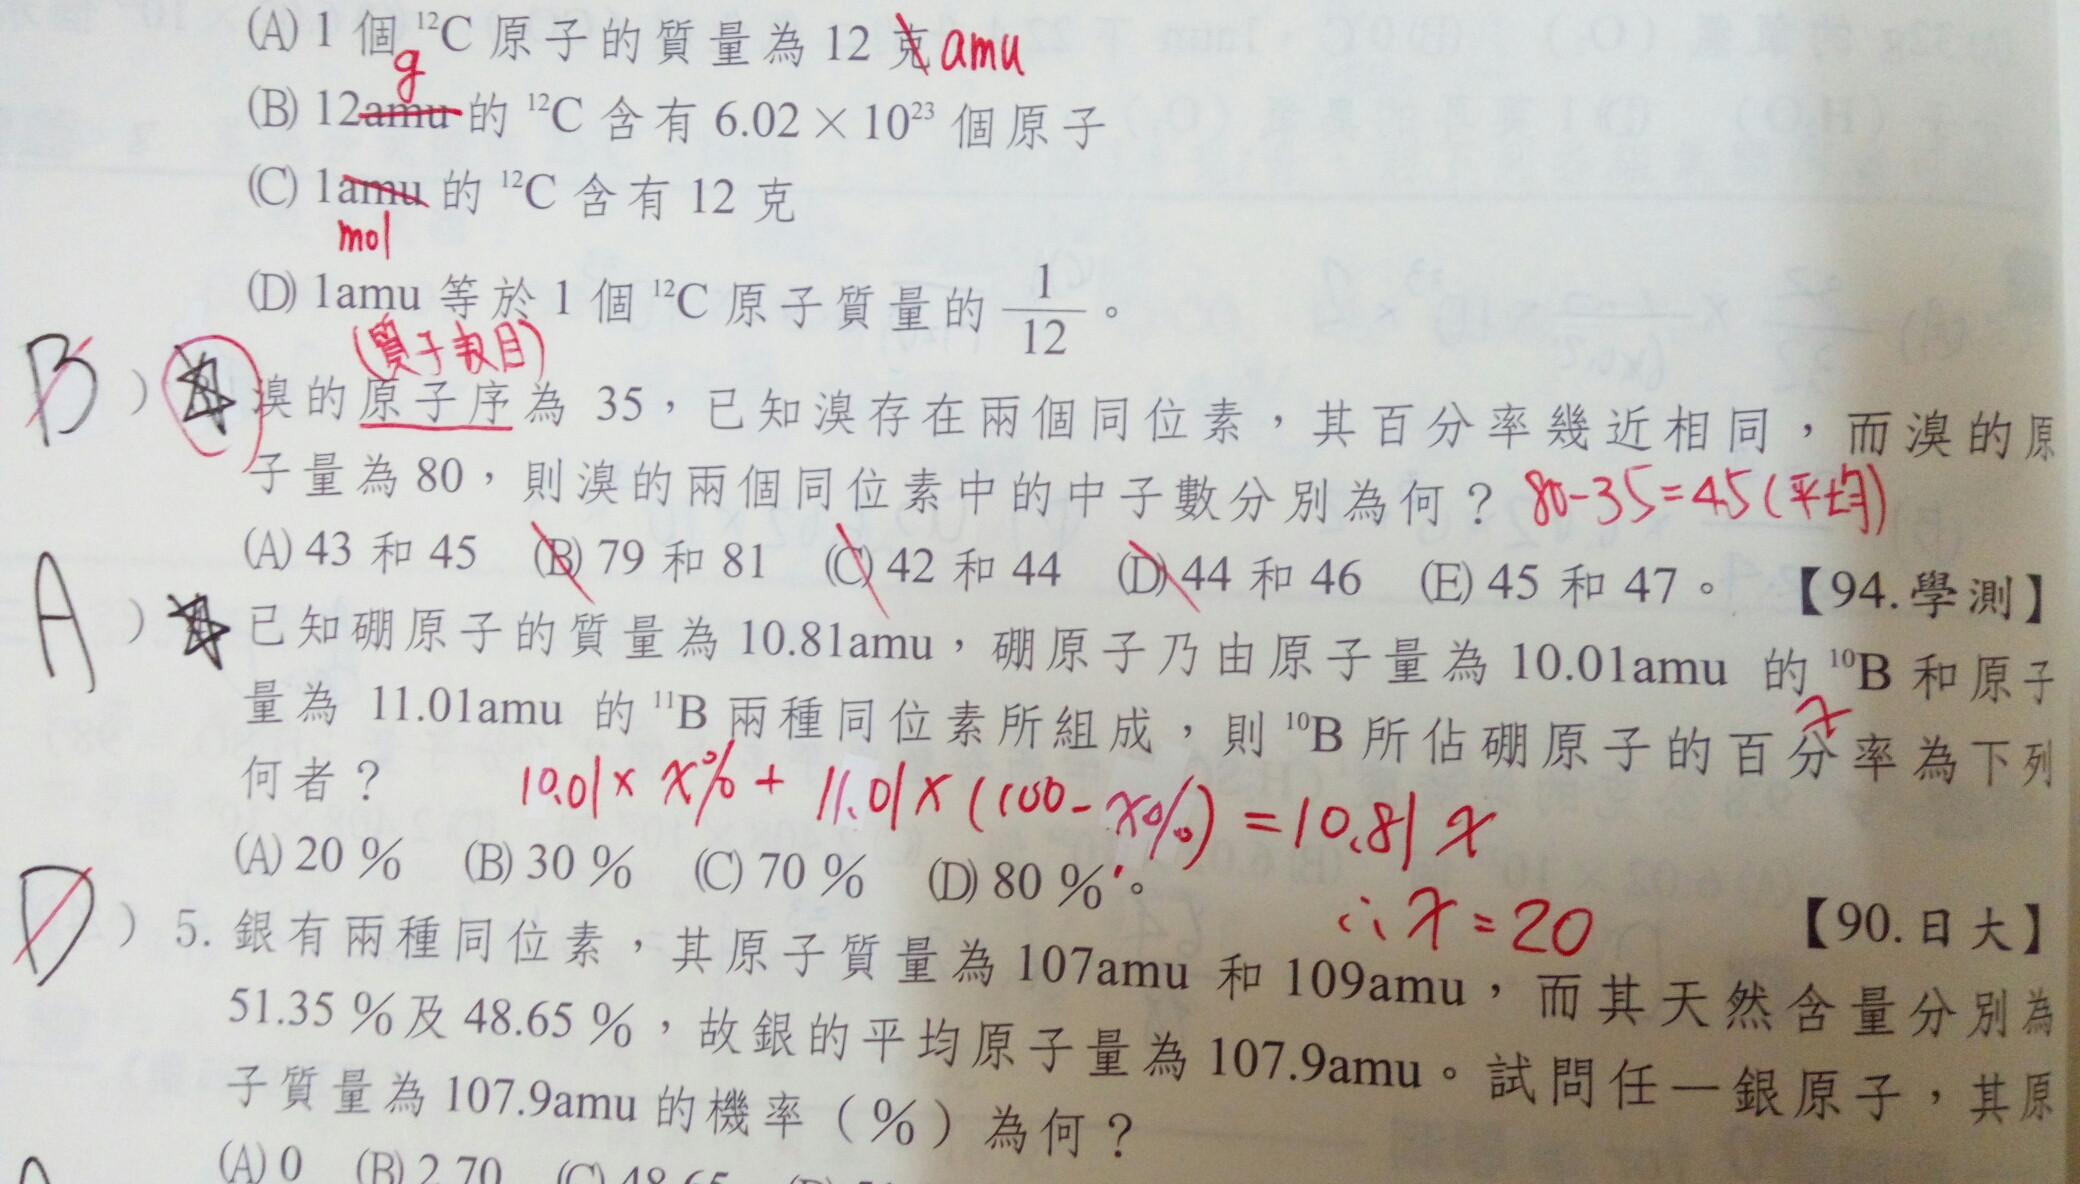 (A) 1 個 ¹²C 原子的質量為 12 克 amu
g
(B) 12amu 的 ¹²C 含有 6.02 × 10²³ 個原子
(C) 1amu 的 ¹²C 含有 12 克
mol
(D) 1amu 等於 1 個 ¹²C 原子質量的 1/12 。
(質子數目)
B ) 溴的原子序為 35，已知溴存在兩個同位素，其百分率幾近相同，而溴的原
子量為 80，則溴的兩個同位素中的中子數分別為何？ 80-35=45(平均)
(A) 43 和 45 (B) 79 和 81 (C) 42 和 44 (D) 44 和 46 (E) 45 和 47。 【94.學測】
A ) 已知硼原子的質量為 10.81amu，硼原子乃由原子量為 10.01amu 的 ¹⁰B 和原子
量為 11.01amu 的 ¹¹B 兩種同位素所組成，則 ¹⁰B 所佔硼原子的百分率為下列
x
何者？ 10.01× x% + 11.01×(100-x%) = 10.81 x
(A) 20 % (B) 30 % (C) 70 % (D) 80 %。
∴ x = 20 【90.日大】
D ) 5. 銀有兩種同位素，其原子質量為 107amu 和 109amu，而其天然含量分別為
51.35 % 及 48.65 %，故銀的平均原子量為 107.9amu。試問任一銀原子，其原
子質量為 107.9amu 的機率（%）為何？
(A) 0 (B) 2.70 (C) 48.65